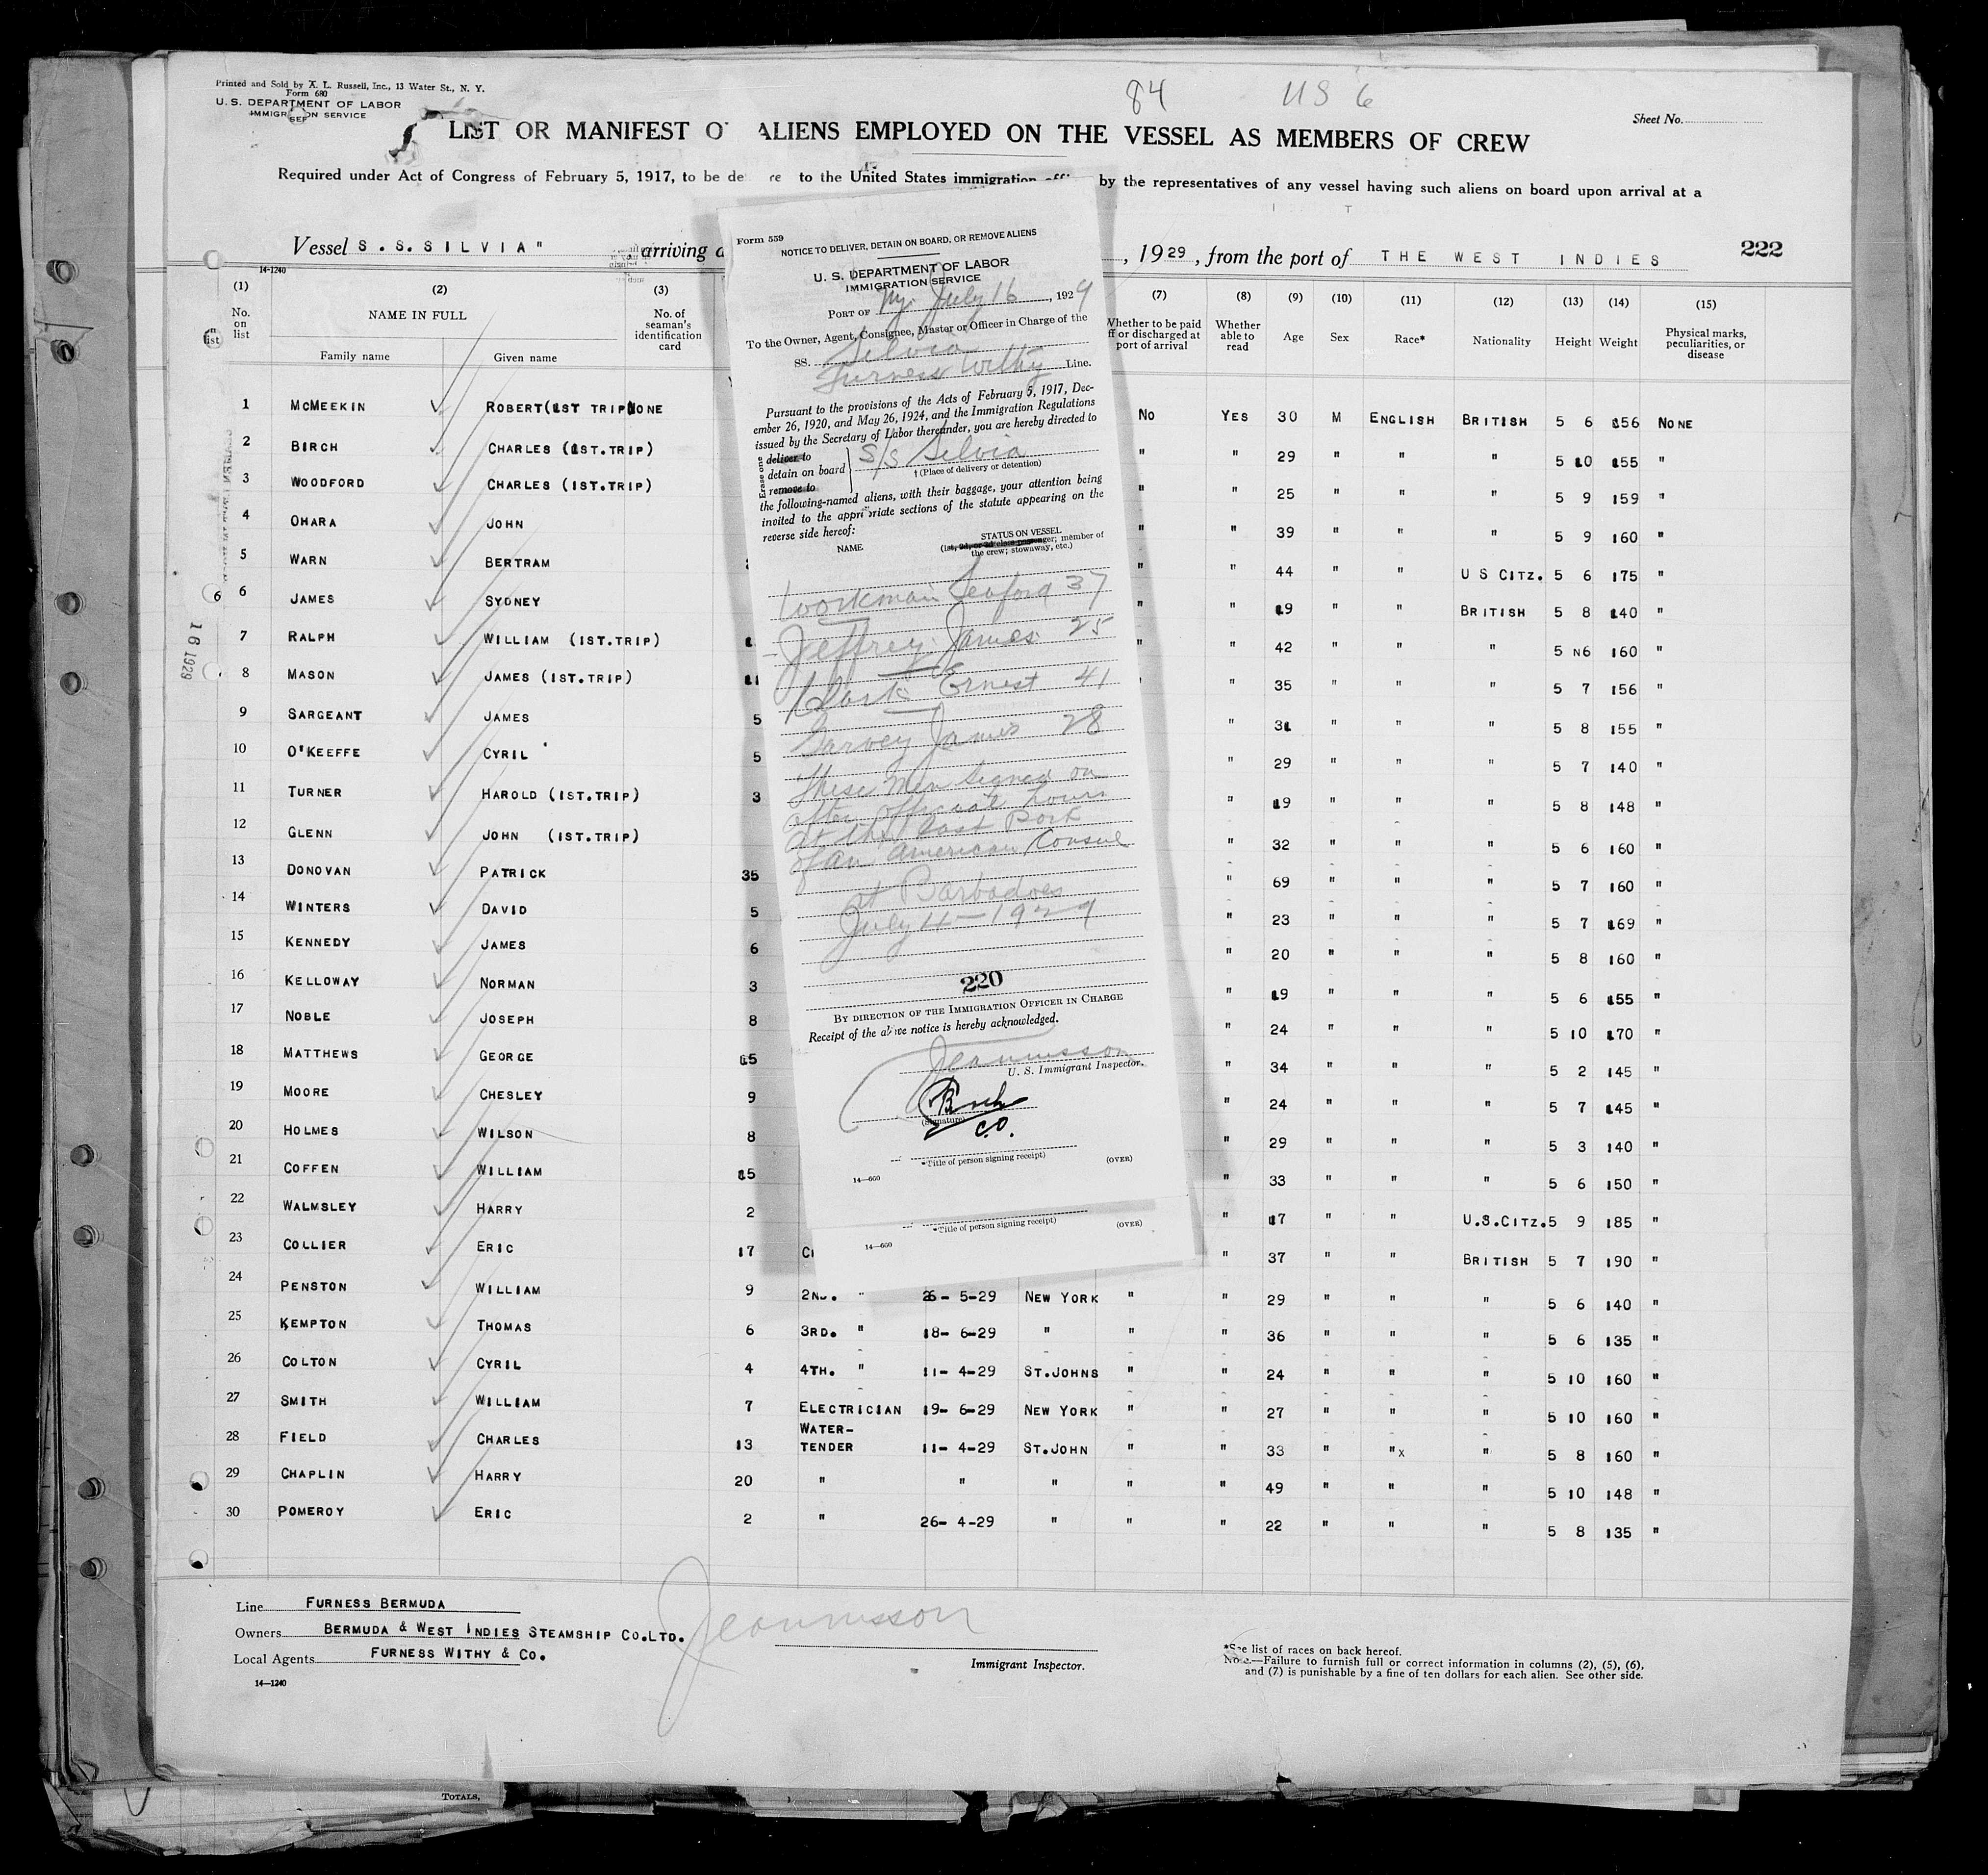 Printed and Sold by A. L. Russell, Inc., 13 Water St., N. Y.
Form 680
U. S. DEPARTMENT OF LABOR
IMMIGRATION SERVICE
84 US 6
Sheet No.
LIST OR MANIFEST OF ALIENS EMPLOYED ON THE VESSEL AS MEMBERS OF CREW
Required under Act of Congress of February 5, 1917, to be de re to the United States immigration by the representatives of any vessel having such aliens on board upon arrival at a
Vessel S.S.SILVIA" arriving , 1929, from the port of THE WEST INDIES 222
14-1240
(1) (2) (3) (7) (8) (9) (10) (11) (12) (13) (14) (15)
No. on list NAME IN FULL Family name Given name No. of seaman's identification card Whether to be paid off or discharged at port of arrival Whether able to read Age Sex Race* Nationality Height Weight Physical marks, peculiarities, or disease
1 McMEEKIN ROBERT(1ST TRIP NONE No YES 30 M ENGLISH BRITISH 5 6 156 NONE
2 BIRCH CHARLES (1ST.TRIP) " " 29 " " " 5 10 155 "
3 WOODFORD CHARLES (1ST.TRIP) " " 25 " " " 5 9 159 "
4 OHARA JOHN " " 39 " " " 5 9 160 "
5 WARN BERTRAM " " 44 " " U S CITZ. 5 6 175 "
6 JAMES SYDNEY " " 19 " " BRITISH 5 8 140 "
7 RALPH WILLIAM (1ST.TRIP) " " 42 " " " 5 N6 160 "
8 MASON JAMES (1ST.TRIP) " " 35 " " " 5 7 156 "
9 SARGEANT JAMES 5 " 31 " " " 5 8 155 "
10 O'KEEFFE CYRIL 5 " 29 " " " 5 7 140 "
11 TURNER HAROLD (1ST.TRIP) 3 " 19 " " " 5 8 148 "
12 GLENN JOHN (1ST.TRIP) " 32 " " " 5 6 160 "
13 DONOVAN PATRICK 35 " 69 " " " 5 7 160 "
14 WINTERS DAVID 5 " 23 " " " 5 7 169 "
15 KENNEDY JAMES 6 " 20 " " " 5 8 160 "
16 KELLOWAY NORMAN 3 " 19 " " " 5 6 155 "
17 NOBLE JOSEPH 8 " 24 " " " 5 10 170 "
18 MATTHEWS GEORGE 15 " 34 " " " 5 2 145 "
19 MOORE CHESLEY 9 " 24 " " " 5 7 145 "
20 HOLMES WILSON 8 " 29 " " " 5 3 140 "
21 COFFEN WILLIAM 15 " 33 " " " 5 6 150 "
22 WALMSLEY HARRY 2 " 17 " " U.S.CITZ. 5 9 185 "
23 COLLIER ERIC 17 " 37 " " BRITISH 5 7 190 "
24 PENSTON WILLIAM 9 2ND. " 26- 5-29 NEW YORK " " 29 " " " 5 6 140 "
25 KEMPTON THOMAS 6 3RD. " 18- 6-29 " " " 36 " " " 5 6 135 "
26 COLTON CYRIL 4 4TH. " 11- 4-29 ST.JOHNS " " 24 " " " 5 10 160 "
27 SMITH WILLIAM 7 ELECTRICIAN 19- 6-29 NEW YORK " " 27 " " " 5 10 160 "
28 FIELD CHARLES 13 WATER-TENDER 11- 4-29 ST.JOHN " " 33 " "x " 5 8 160 "
29 CHAPLIN HARRY 20 " " " " " 49 " " " 5 10 148 "
30 POMEROY ERIC 2 " 26- 4-29 " " " 22 " " " 5 8 135 "
16 1929
6
Form 559
NOTICE TO DELIVER, DETAIN ON BOARD, OR REMOVE ALIENS
U. S. DEPARTMENT OF LABOR
IMMIGRATION SERVICE
PORT OF Ny. July 16, 1929
To the Owner, Agent, Consignee, Master or Officer in Charge of the
SS. Silvia
Furness Withy Line.
Pursuant to the provisions of the Acts of February 5, 1917, Dec-
ember 26, 1920, and May 26, 1924, and the Immigration Regulations
issued by the Secretary of Labor thereunder, you are hereby directed to
Erase one
deliver to
detain on board
remove to
S/S Silvia
† (Place of delivery or detention)
the following-named aliens, with their baggage, your attention being
invited to the appropriate sections of the statute appearing on the
reverse side hereof:
NAME
STATUS ON VESSEL
(1st, 2d, or 3d class passenger; member of
the crew; stowaway, etc.)
Workman Seaford 37
Jeffrey James 25
Clark Ernest 41
Garvey James 28
These men signed on
after official hours
at the last Port
of an American Consul
at Barbadoes
July 11-1929
220
BY DIRECTION OF THE IMMIGRATION OFFICER IN CHARGE
Receipt of the above notice is hereby acknowledged.
U. S. Immigrant Inspector.
(Signature)
C.O.
*Title of person signing receipt)
14—660 (OVER)
*Title of person signing receipt)
14—660 (OVER)
Line FURNESS BERMUDA
Owners BERMUDA & WEST INDIES STEAMSHIP CO.LTD.
Local Agents FURNESS WITHY & CO.
14—1240
Immigrant Inspector.
*See list of races on back hereof.
NOTE.—Failure to furnish full or correct information in columns (2), (5), (6),
and (7) is punishable by a fine of ten dollars for each alien. See other side.
TOTALS,